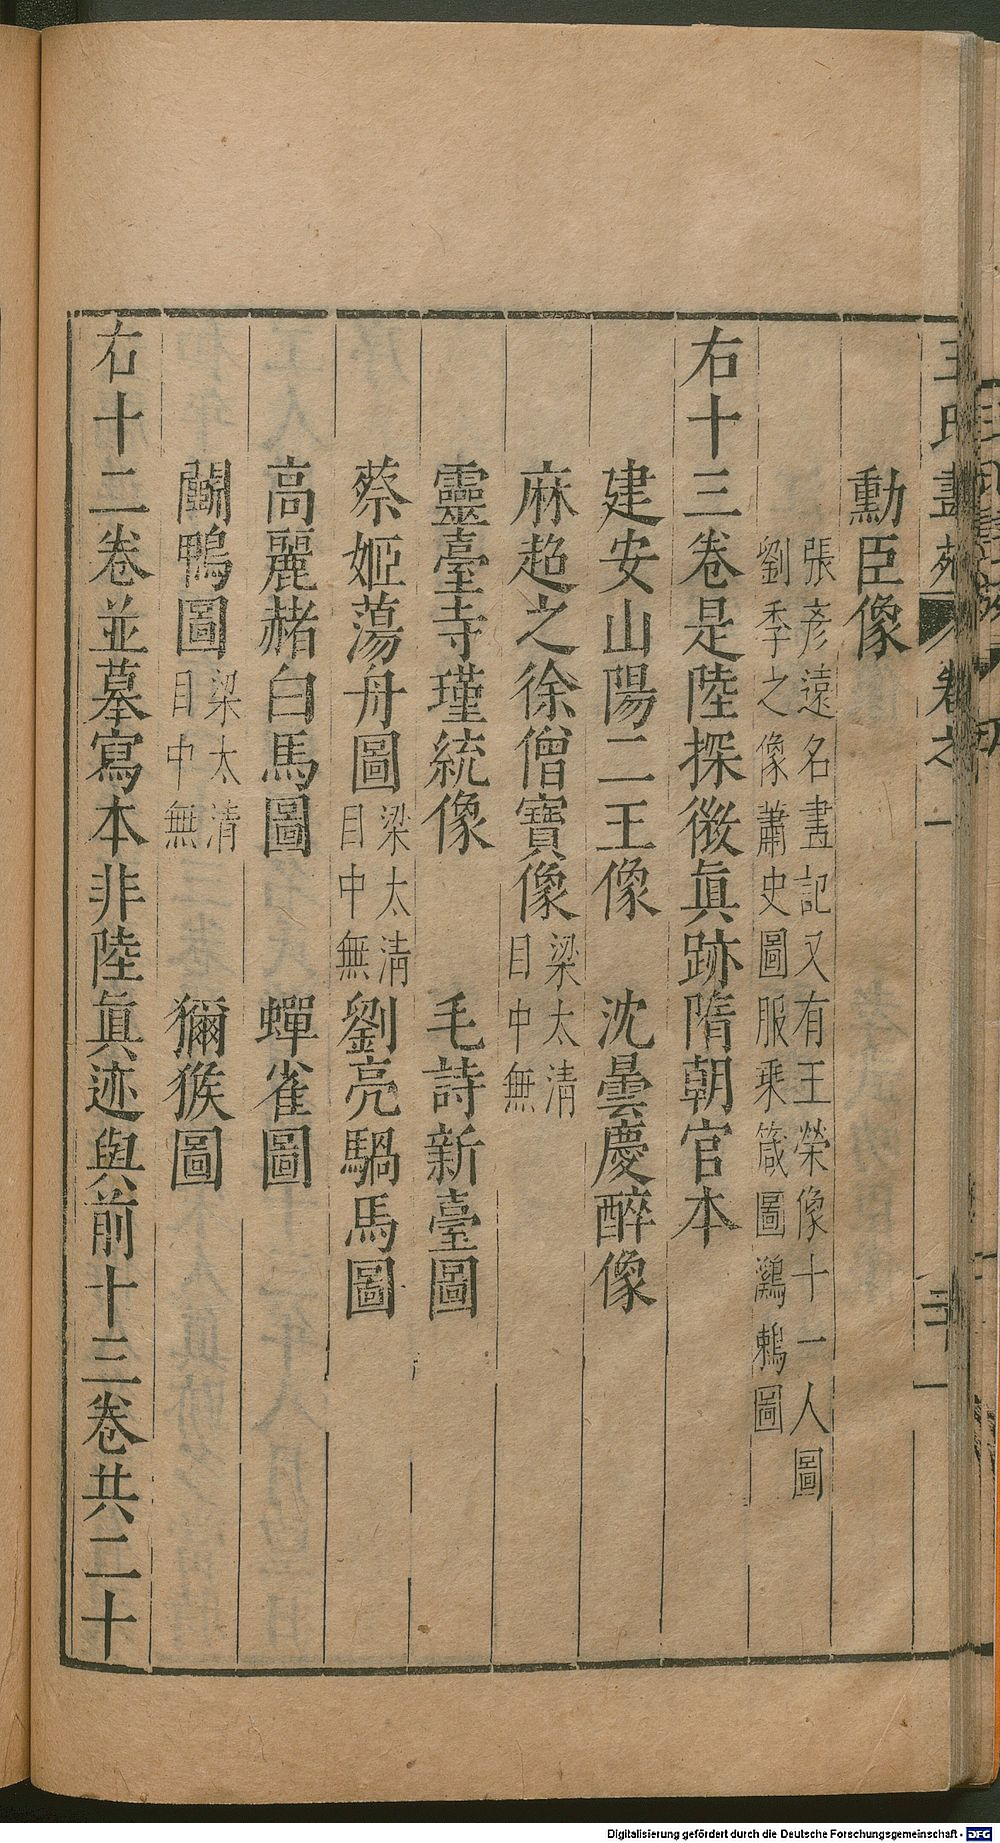 王氏畫苑 卷之一 三十一
勳臣像
張彥遠名畫記又有王榮像十一人圖
劉季之像蕭史圖服乘箴圖鸂鶒圖
右十三卷是陸探微眞跡隋朝官本
建安山陽二王像 沈曇慶醉像
麻超之徐僧寶像 梁太清
目中無
靈臺寺瑾統像 毛詩新臺圖
蔡姬蕩舟圖 梁太淸
目中無 劉亮騧馬圖
高麗赭白馬圖 蟬雀圖
鬭鴨圖 梁太清
目中無 獼猴圖
右十二卷並摹寫本非陸眞迹與前十三卷共二十
Digitalisierung gefördert durch die Deutsche Forschungsgemeinschaft - DFG